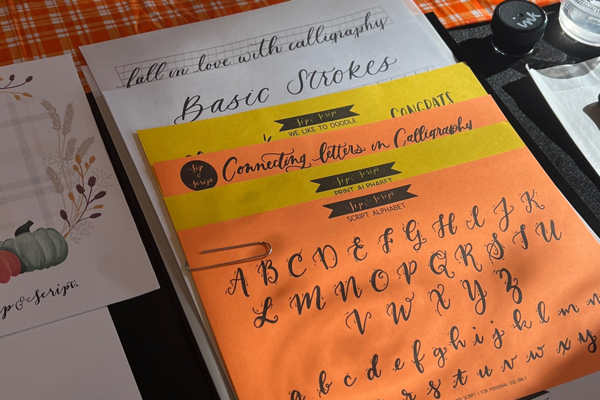 fall in love with calligraphy
Basic Strokes
Sip & Script
WE LIKE TO DOODLE
CONGRATS
Sip & Script
Connecting letters in Calligraphy
Sip & Script
PRINT ALPHABET
Sip & Script
SCRIPT ALPHABET
A B C D E F G H I J K
L M N O P Q R S T U
V W X Y Z
a b c d e f g h i j k l m n
r s t u v w x y
SCRIPT | FOR PERSONAL USE ONLY
p & Script.
ink